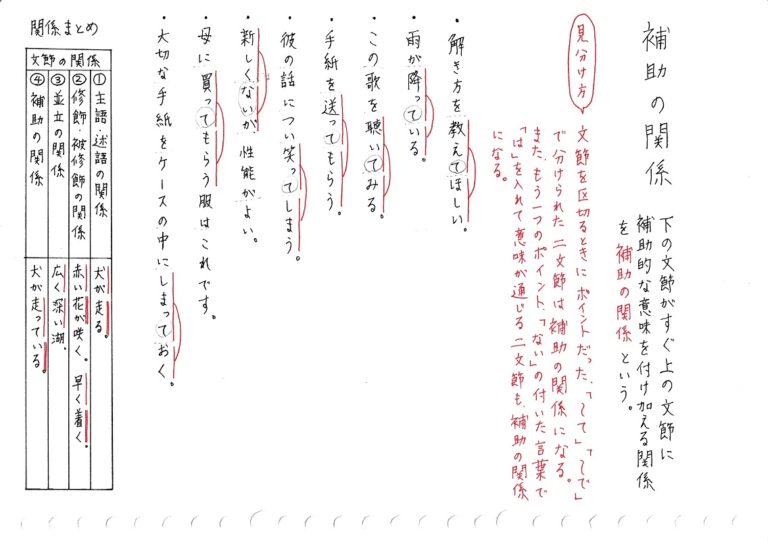 補助の関係
下の文節がすぐ上の文節に
補助的な意味を付け加える関係
を補助の関係という。
見分け方
文節を区切るときにポイントだった、「〜て」「〜で」
で分けられた二文節は補助の関係になる。
また、もう一つのポイント、「ない」の付いた言葉で
「は」を入れて意味が通じる二文節も、補助の関係
になる。
・解き方を教えてほしい。
・雨が降っている。
・この歌を聴いてみる。
・手紙を送ってもらう。
・彼の話につい笑ってしまう。
・新しくないが、性能がよい。
・母に買ってもらう服はこれです。
・大切な手紙をケースの中にしまっておく。
関係まとめ
文節の関係
①主語・述語の関係
犬が走る。
②修飾・被修飾の関係
赤い花が咲く。 早く着く。
③並立の関係
広く深い湖。
④補助の関係
犬が走っている。